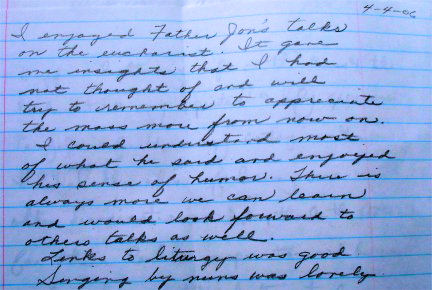 4-4-06
I enjoyed Father Jon's talks
on the eucharist. It gave
me insights that I had
not thought of and will
try to remember to appreciate
the mass more from now on.
I could understand most
of what he said and enjoyed
his sense of humor. There is
always more we can learn
and would look forward to
others talks as well.
Links to liturgy was good.
Singing by nuns was lovely.